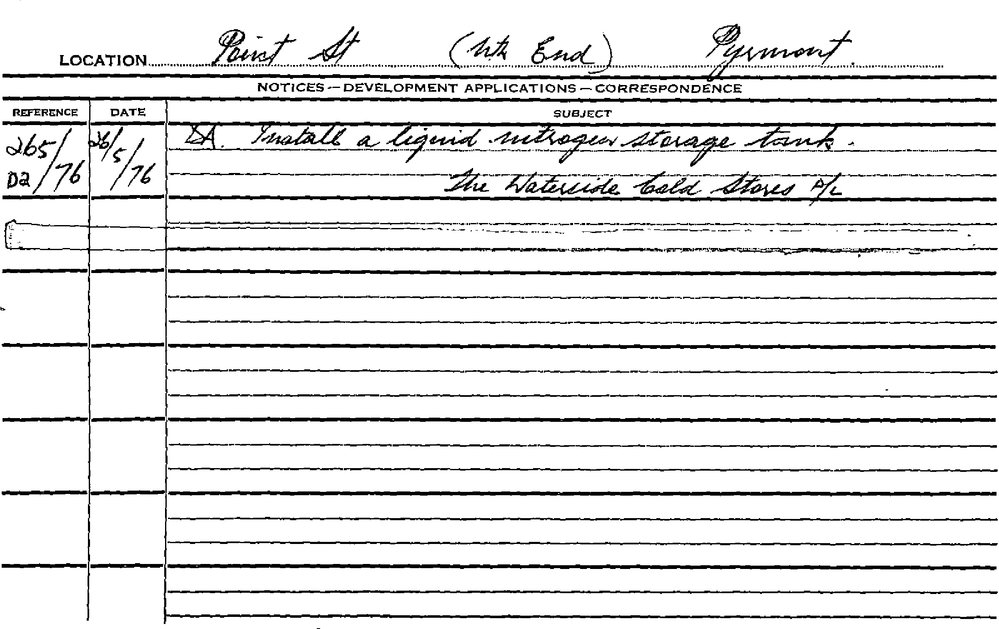 LOCATION Point St (Nth End) Pyrmont.
NOTICES — DEVELOPMENT APPLICATIONS — CORRESPONDENCE
REFERENCE DATE SUBJECT
265/76 26/5/76 DA. Install a liquid nitrogen storage tank.
D2 The Waterside Cold Stores P/L